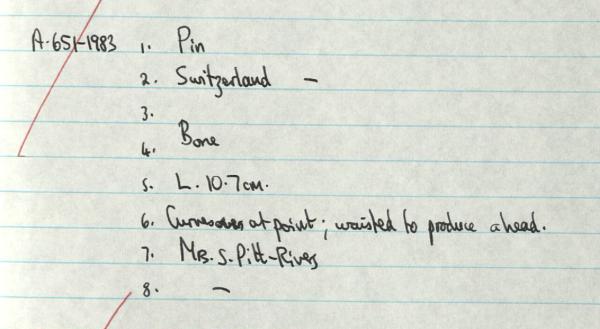 A.651-1983 1. Pin
2. Switzerland –
3.
4. Bone
5. L. 10.7cm.
6. Curves over at point; waisted to produce a head.
7. Mrs. S. Pitt-Rivers
8. –